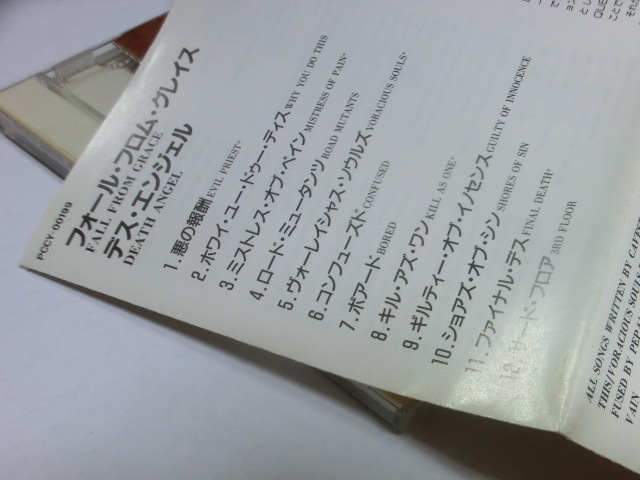 PCCY-00199
フォール・フロム・グレイス
FALL FROM GRACE
デス・エンジェル
DEATH ANGEL
1. 悪の報酬 EVIL PRIEST*
2. ホワイ・ユー・ドゥー・ディス WHY YOU DO THIS
3. ミストレス・オブ・ペイン MISTRESS OF PAIN*
4. ロード・ミュータンツ ROAD MUTANTS
5. ヴォーレイシャス・ソウルズ VORACIOUS SOULS*
6. コンフューズスト CONFUSED
7. ボアード BORED
8. キル・アズ・ワン KILL AS ONE*
9. ギルティー・オブ・イノセンス GUILTY OF INNOCENCE
10. ショアズ・オブ・シン SHORES OF SIN
11. ファイナル・デス FINAL DEATH*
12. サード・フロア 3RD FLOOR
ALL SONGS WRITTEN BY
THIS/VORACIOUS SOUL
FUSED BY
VAIN